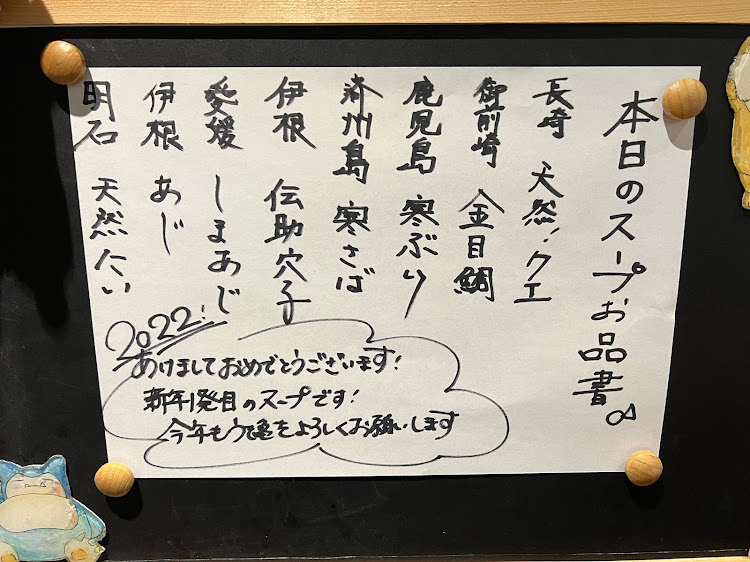 本日のスープお品書。
長崎 天然!クエ
御前崎 金目鯛
鹿児島 寒ぶり
済州島 寒さば
伊根 伝助穴子
愛媛 しまあじ
伊根 あじ
明石 天然たい
2022!
あけましておめでとうございます!
新年1発目のスープです!
今年もう亀をよろしくお願いします